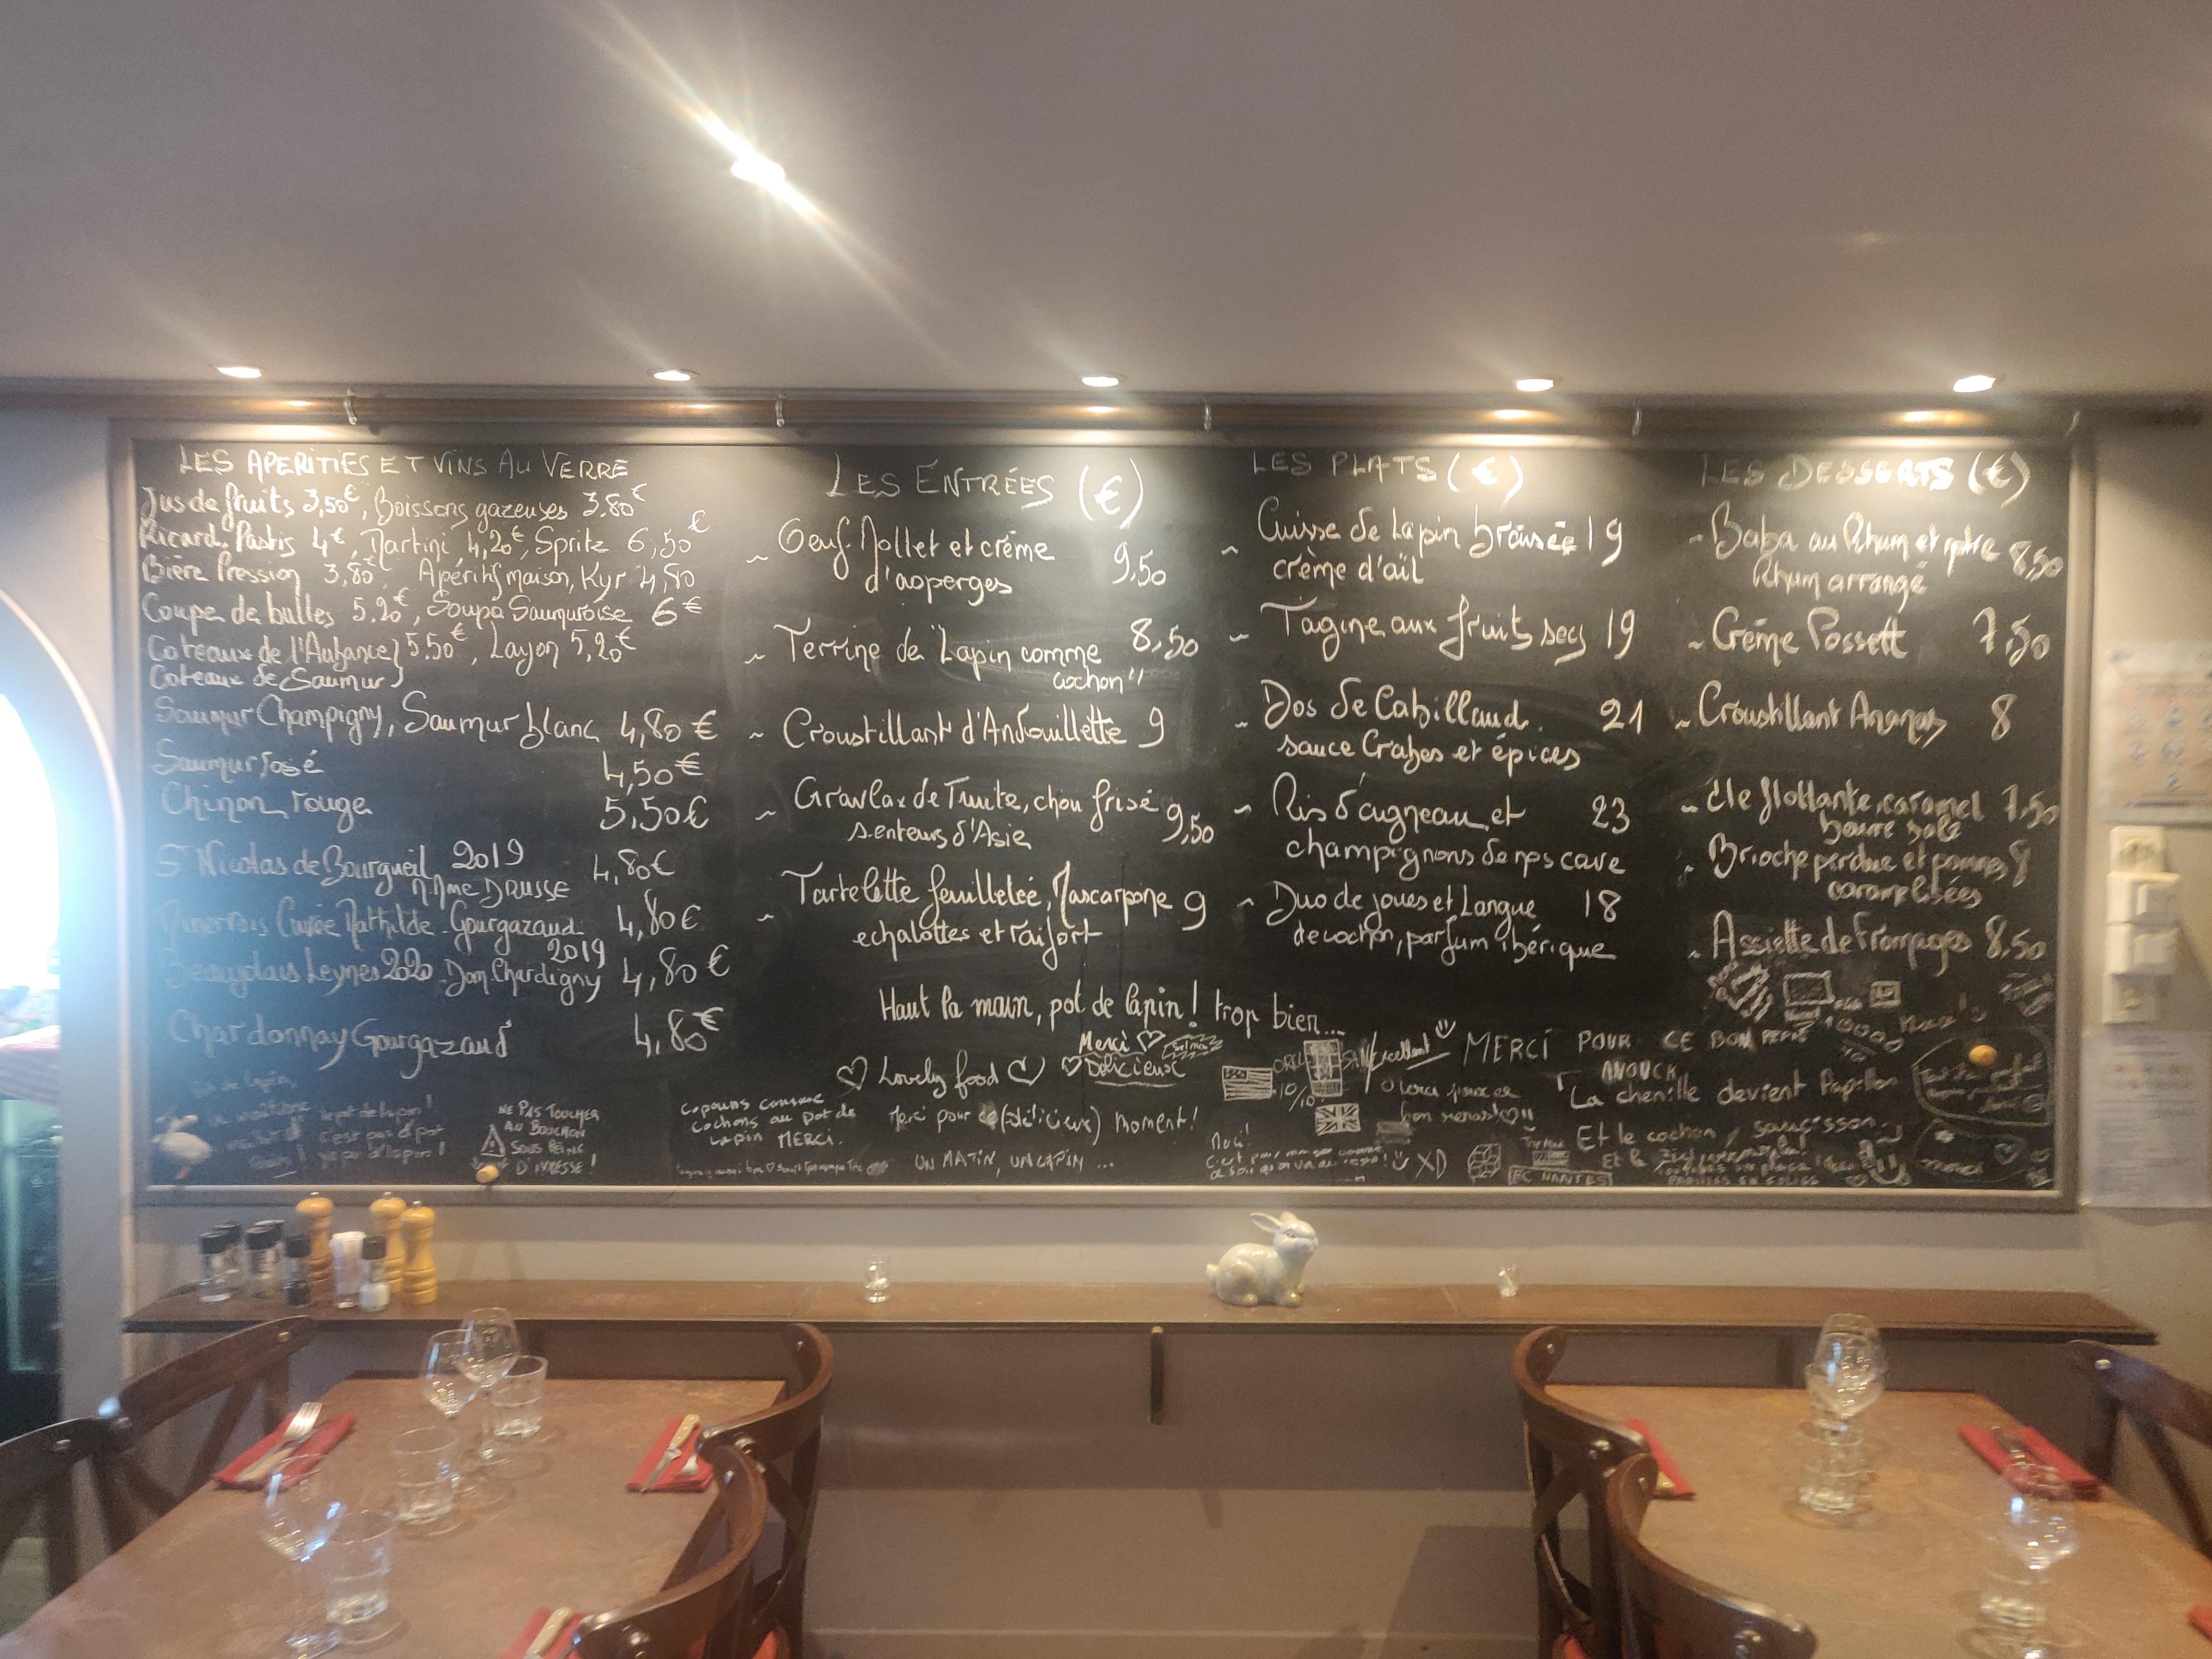 LES APERITIFS ET VINS AU VERRE
Jus de fruits 3,50€, Boissons gazeuses 3,80€
Ricard, Pastis 4€, Martini 4,20€, Spritz 6,50€
Bière Pression 3,80€, Apéritif maison, Kyr 4,80
Coupe de bulles 5,20€, Soupe Saumuroise 6€
Coteaux de l'Aubance 5.50€, Layon 5,20€
Coteaux de Saumur
Saumur Champigny, Saumur blanc 4,80€
Saumur rosé 4,50€
Chinon rouge 5,50€
St Nicolas de Bourgueil 2019 4,80€
Mme DRUSSE
Minervois Cuvée Mathilde - Gourgazaud 4,80€
2019
Beaujolais Leynes 2020 - Dom. Chardigny 4,80€
Chardonnay Gourgazaud 4,80€
NE PAS TOUCHER
AU BOUCHON
SOUS PEINE
D'IVRESSE !
LES ENTRÉES (€)
~ Oeuf Mollet et crème 9,50
d'asperges
~ Terrine de "Lapin comme 8,50
cochon"
~ Croustillant d'Andouillette 9
~ Gravlax de Truite, chou frisé 9,50
senteurs d'Asie
~ Tartelette feuilletée, Mascarpone 9
echalottes et raifort
Haut la main, pot de lapin ! trop bien...
Merci ♡ Selma
♡ Lovely food ♡ ♡ Délicieux
Copains comme
cochons au pot de
lapin MERCI.
Merci pour ce (délicieux) moment !
UN MATIN, UN LAPIN ...
LES PLATS (€)
~ Cuisse de Lapin braisée 19
crème d'ail
~ Tagine aux fruits secs 19
~ Dos de Cabillaud 21
sauce Crabes et épices
~ Ris d'agneau et 23
champignons de nos cave
~ Duo de joues et Langue 18
de cochon, parfum ibérique
Excellent
10/10
XD
FC NANTES
LES DESSERTS (€)
~ Baba au Rhum et notre 8,50
Rhum arrangé
~ Crème Possett 7,50
~ Croustillant Ananas 8
~ Ile flottante, caramel 7,50
beurre salé
~ Brioche perdue et pommes 8
caramelisées
~ Assiette de Fromages 8,50
MERCI POUR CE BON REPAS
ANOUCK
La chenille devient Papillon
Et le cochon, saucisson
merci